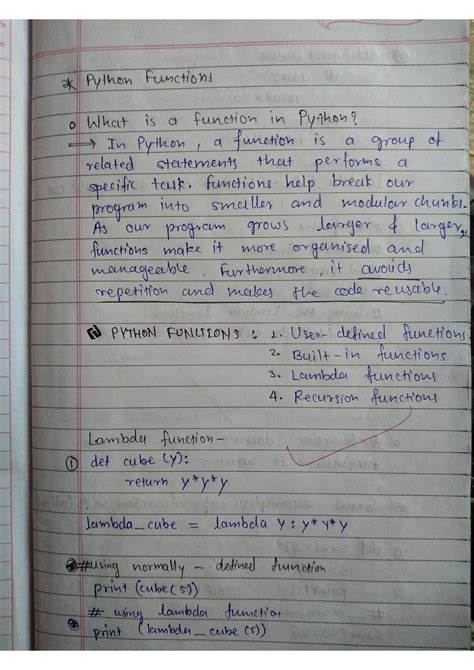 * Python Functions
o What is a function in Python?
⇒ In Python, a function is a group of
related statements that performs a
specific task. Functions help break our
program into smaller and modular chunks.
As our program grows larger & larger,
functions make it more organised and
manageable. Furthermore, it avoids
repetition and makes the code reusable.
PYTHON FUNCTIONS : 1. User-defined functions
2. Built-in functions
3. Lambda functions
4. Recursion functions
Lambda function -
① def cube (y):
return y*y*y
lambda_cube = lambda y : y* y* y
#using normally - defined function
print (cube(5))
# using lambda function
print (lambda_cube (5))